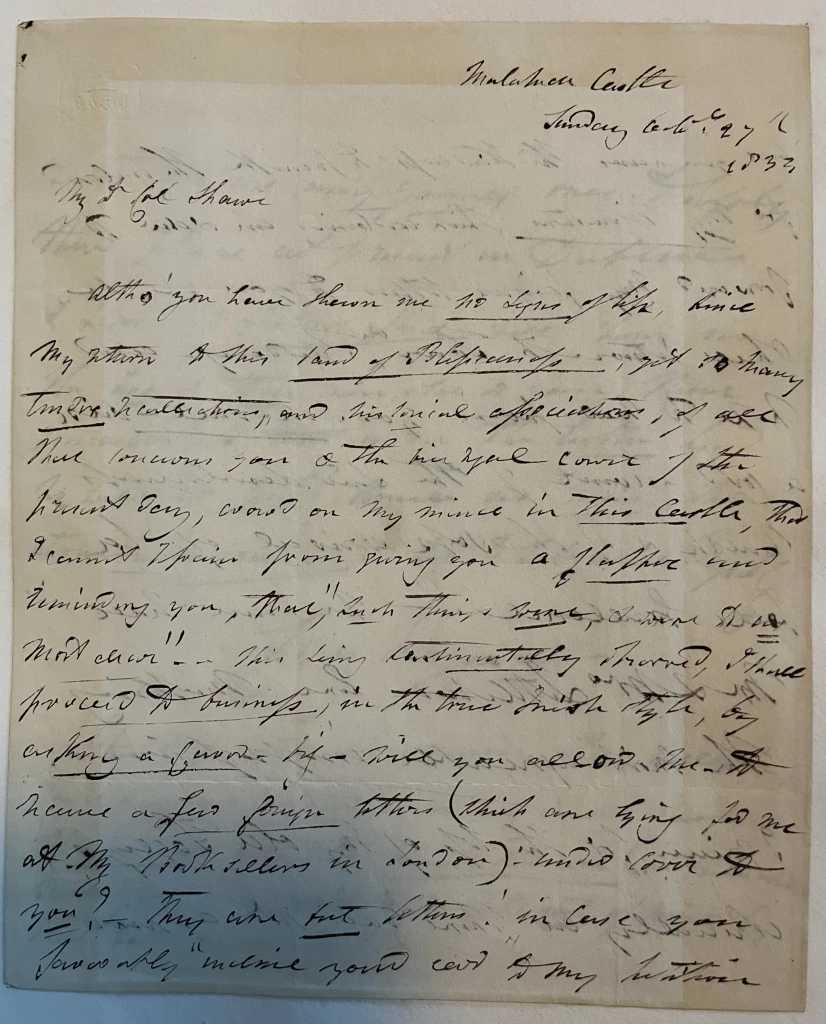 Malahide Castle
Sunday Octr. 27th
1833
My Dr Col Shawe
Altho' you have shewn me no signs of life, since
My return to this land of Blessedness, yet so many
tender recollections, and historical associations, of all
that concerns you & the vice regal court of the
present day, crowd on my mind in this Castle, that
I cannot refrain from giving you a flapper and
reminding you, that "such things were, & were to me
most dear" - this being sentimentally observed, I shall
proceed to business, in the true Irish style, by
asking a favor - viz - will you allow me to
have a few foreign letters (which are lying for me
at My Booksellers in London) under cover to
you? - They are but letters! in case you
favorably "incline your ear" to my petition